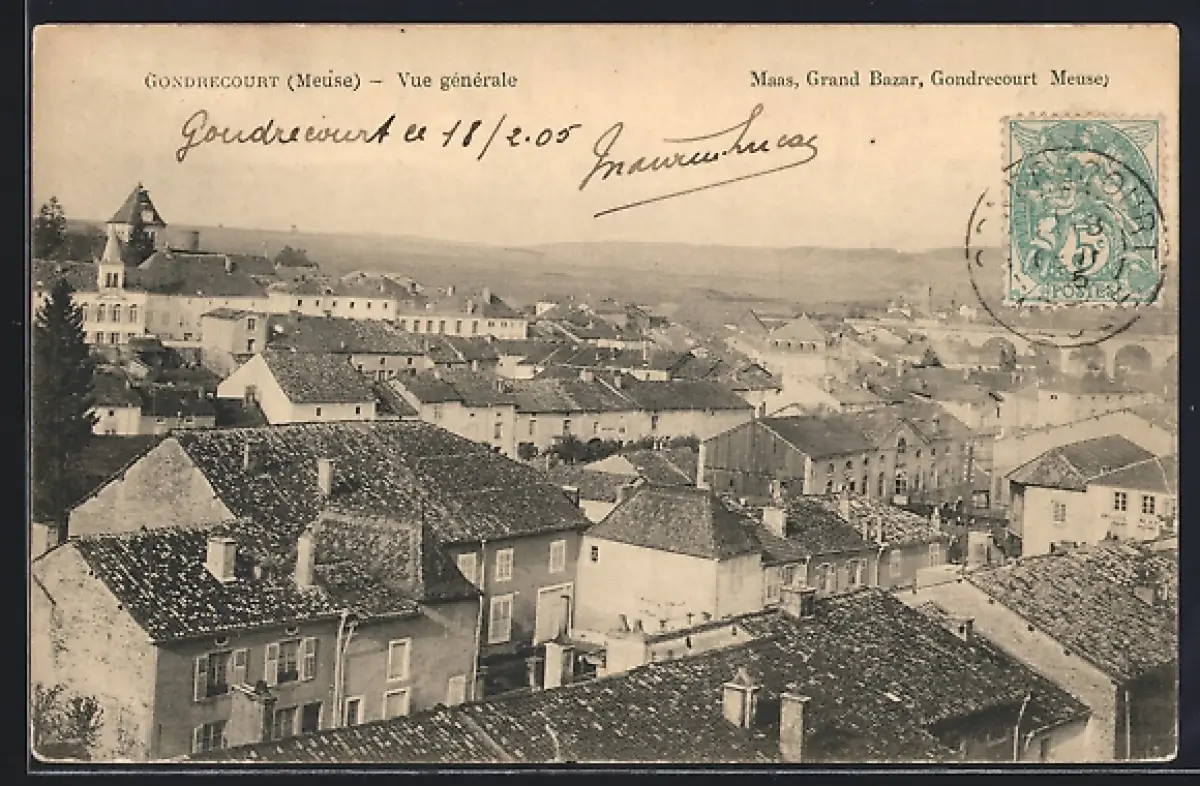 GONDRECOURT (Meuse) – Vue générale
Maas, Grand Bazar, Gondrecourt Meuse;
Gondrecourt le 18/2.05
5
POSTES